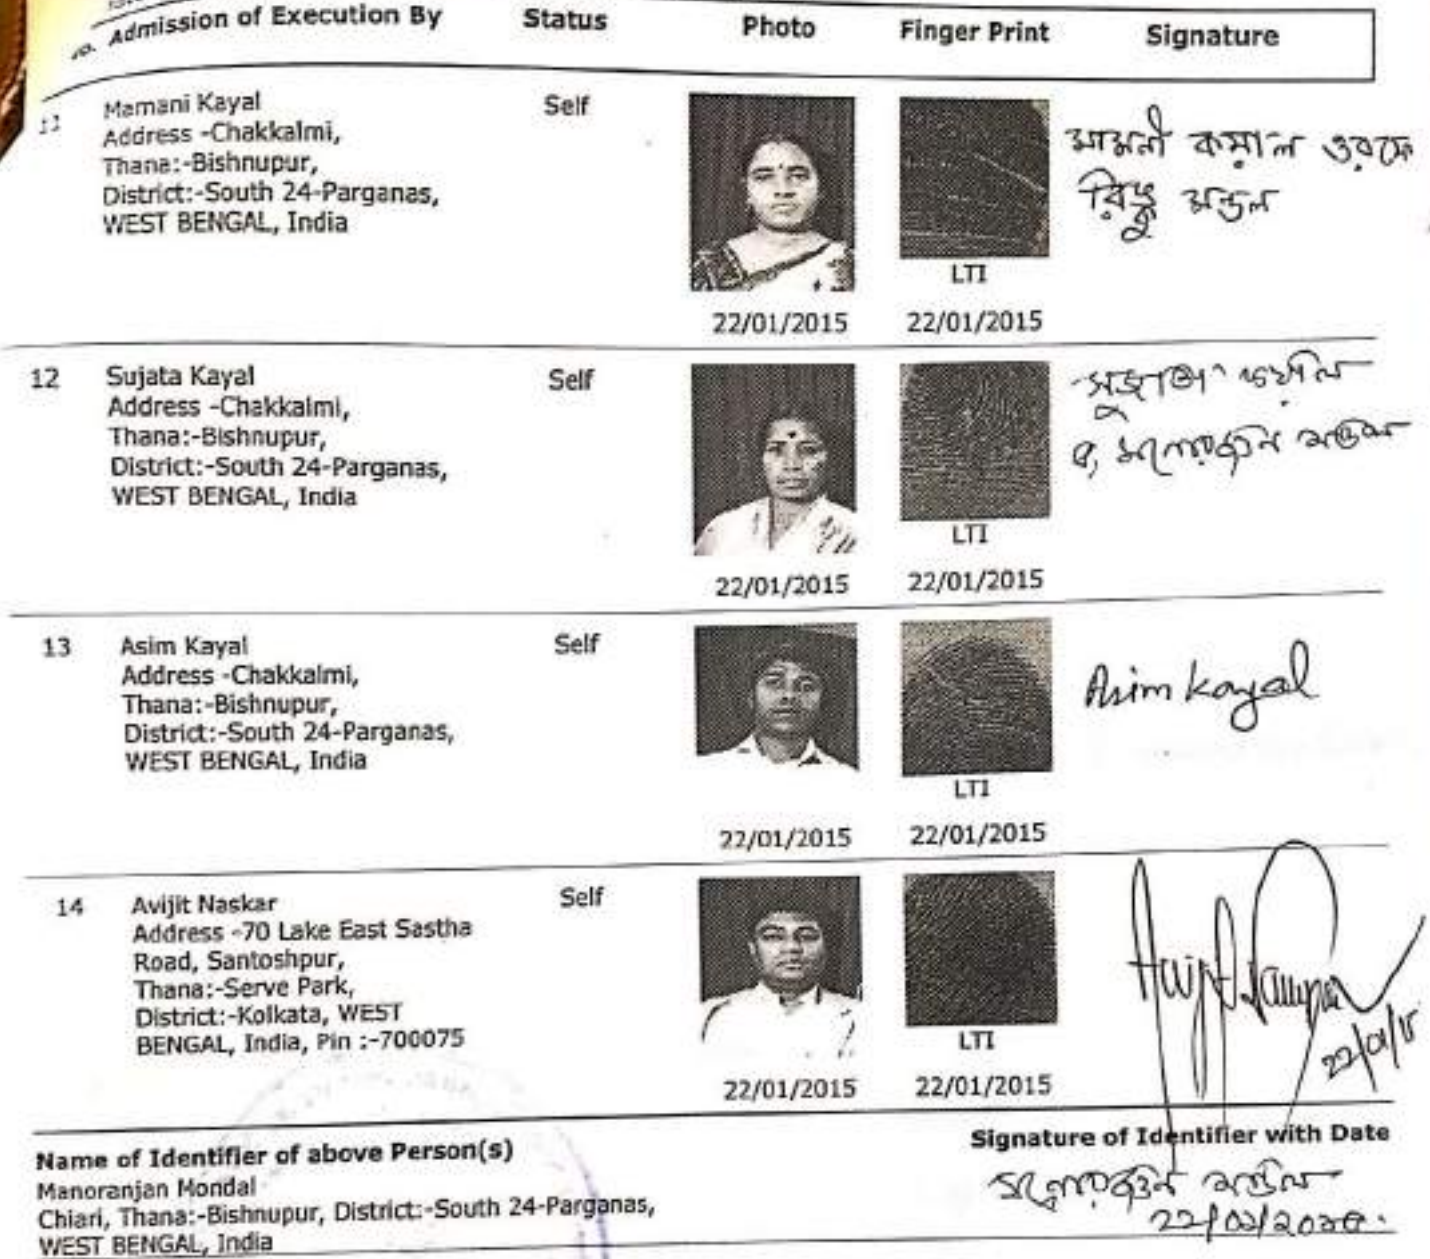 No. Admission of Execution By Status Photo Finger Print Signature
11 Mamani Kayal Self
Address -Chakkalmi,
Thana:-Bishnupur,
District:-South 24-Parganas,
WEST BENGAL, India
LTI
22/01/2015 22/01/2015
মামনী কয়াল ওরফে
রিঙ্কু মন্ডল
12 Sujata Kayal Self
Address -Chakkalmi,
Thana:-Bishnupur,
District:-South 24-Parganas,
WEST BENGAL, India
LTI
22/01/2015 22/01/2015
সুজাতা কয়াল
ব, মনোরঞ্জন মন্ডল
13 Asim Kayal Self
Address -Chakkalmi,
Thana:-Bishnupur,
District:-South 24-Parganas,
WEST BENGAL, India
LTI
22/01/2015 22/01/2015
Asim Kayal
14 Avijit Naskar Self
Address -70 Lake East Sastha
Road, Santoshpur,
Thana:-Serve Park,
District:-Kolkata, WEST
BENGAL, India, Pin :-700075
LTI
22/01/2015 22/01/2015
22/01/15
Name of Identifier of above Person(s) Signature of Identifier with Date
Manoranjan Mondal
Chiari, Thana:-Bishnupur, District:-South 24-Parganas,
WEST BENGAL, India
মনোরঞ্জন মন্ডল
২২/০১/২০১৫